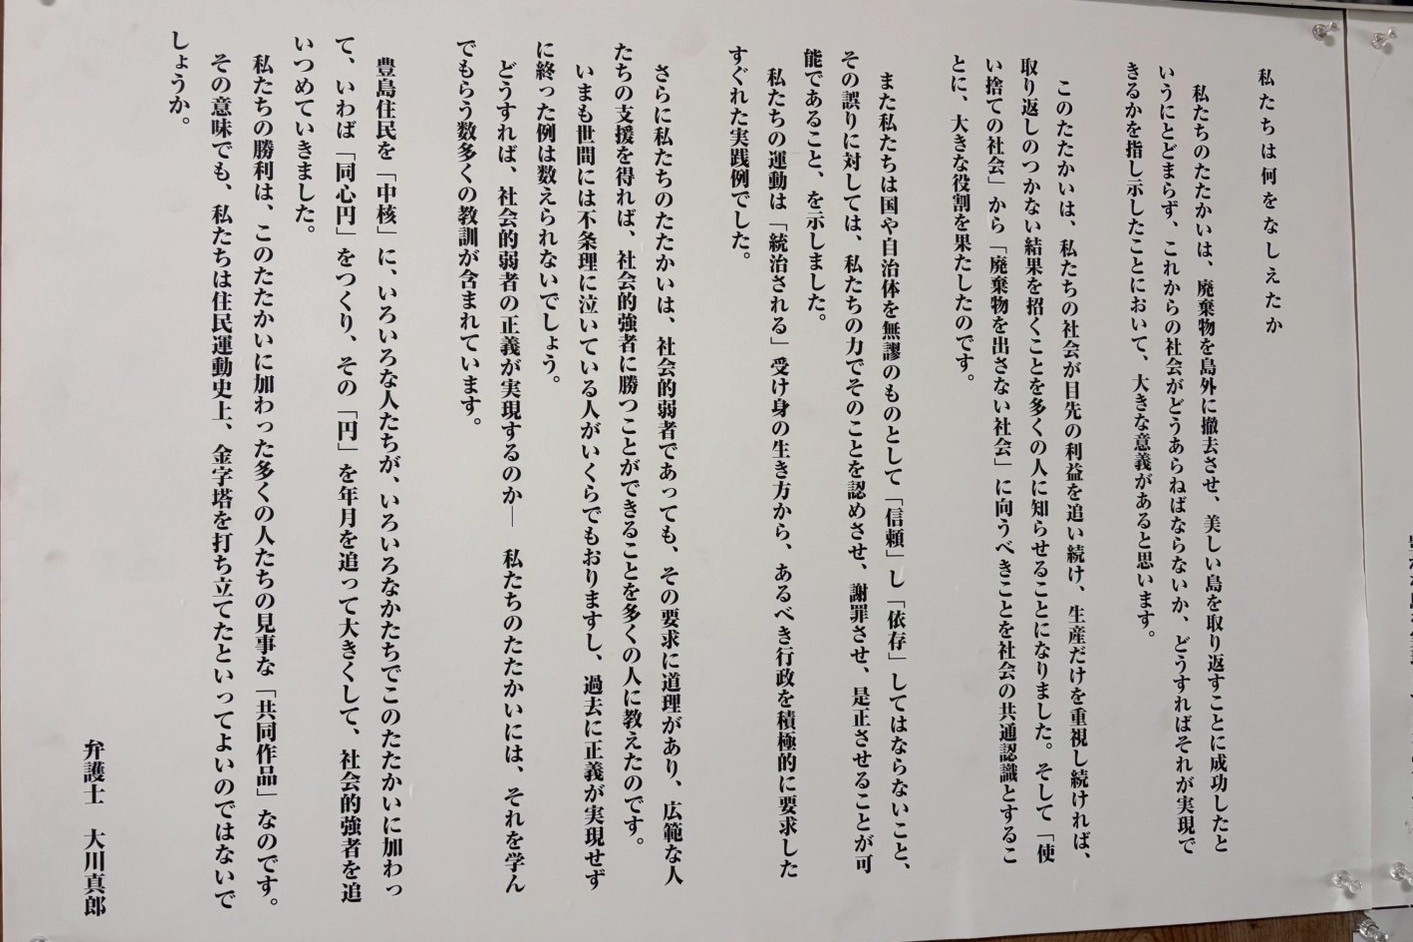 私たちは何をなしえたか
私たちのたたかいは、廃棄物を島外に撤去させ、美しい島を取り返すことに成功したと
いうにとどまらず、これからの社会がどうあらねばならないか、どうすればそれが実現で
きるかを指し示したことにおいて、大きな意義があると思います。
このたたかいは、私たちの社会が目先の利益を追い続け、生産だけを重視し続ければ、
取り返しのつかない結果を招くことを多くの人に知らせることになりました。そして「使
い捨ての社会」から「廃棄物を出さない社会」に向うべきことを社会の共通認識とするこ
とに、大きな役割を果たしたのです。
また私たちは国や自治体を無謬のものとして「信頼」し「依存」してはならないこと、
その誤りに対しては、私たちの力でそのことを認めさせ、謝罪させ、是正させることが可
能であること、を示しました。
私たちの運動は「統治される」受け身の生き方から、あるべき行政を積極的に要求した
すぐれた実践例でした。
さらに私たちのたたかいは、社会的弱者であっても、その要求に道理があり、広範な人
たちの支援を得れば、社会的強者に勝つことができることを多くの人に教えたのです。
いまも世間には不条理に泣いている人がいくらでもおりますし、過去に正義が実現せず
に終った例は数えられないでしょう。
どうすれば、社会的弱者の正義が実現するのか― 私たちのたたかいには、それを学ん
でもらう数多くの教訓が含まれています。
豊島住民を「中核」に、いろいろな人たちが、いろいろなかたちでこのたたかいに加わっ
て、いわば「同心円」をつくり、その「円」を年月を追って大きくして、社会的強者を追
いつめていきました。
私たちの勝利は、このたたかいに加わった多くの人たちの見事な「共同作品」なのです。
その意味でも、私たちは住民運動史上、金字塔を打ち立てたといってよいのではないで
しょうか。
弁護士　大川真郎